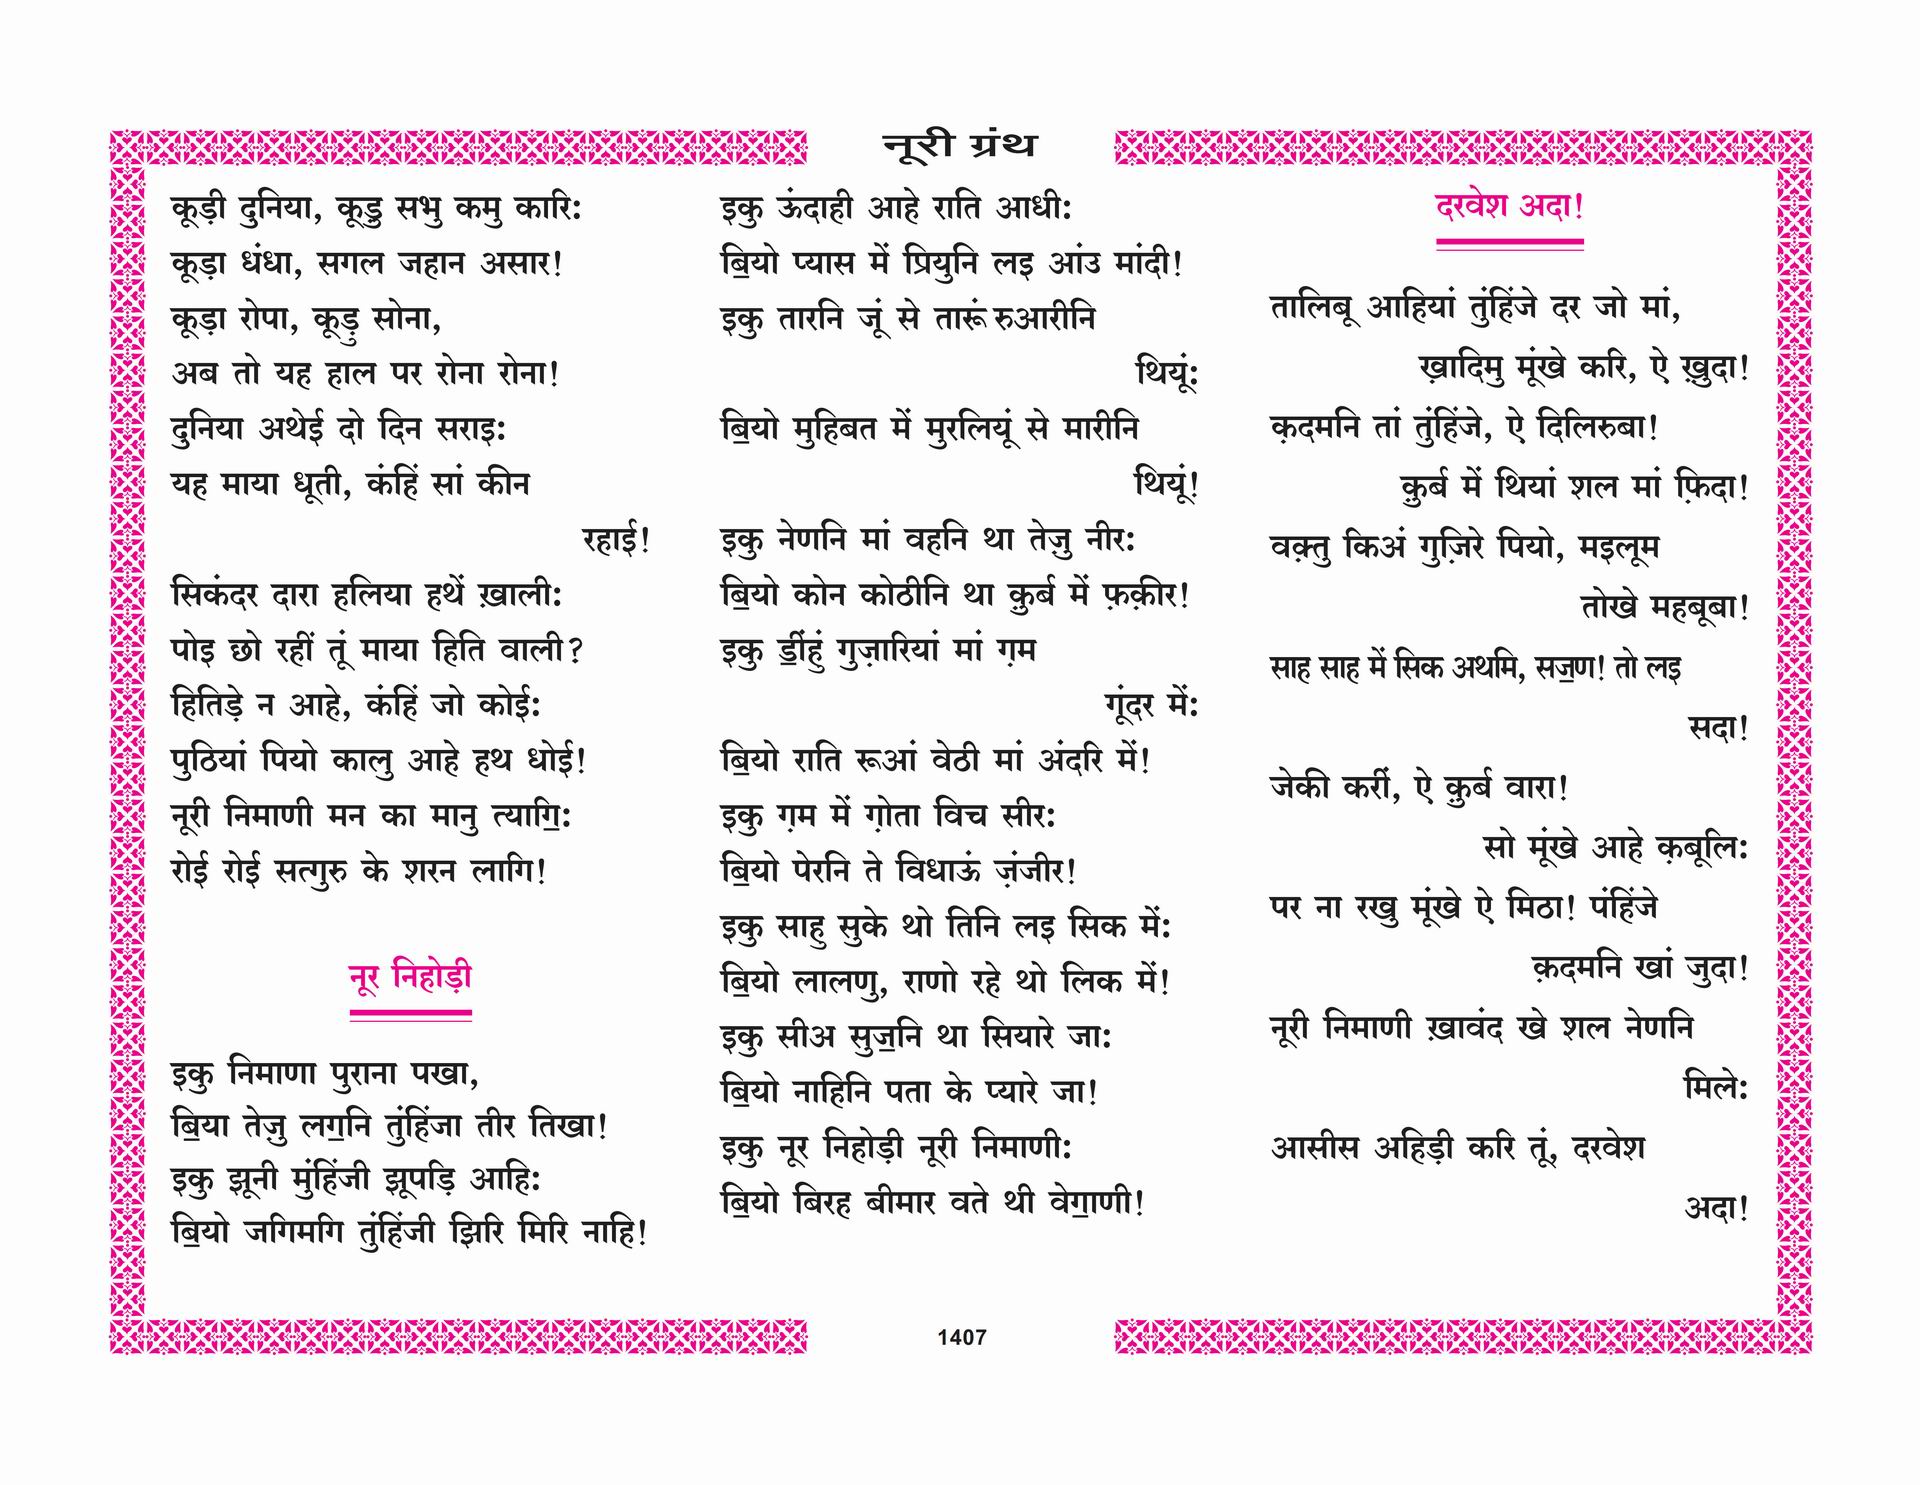 नूरी ग्रंथ
कूड़ी दुनिया, कूड़ु सभु कमु कारि:
कूड़ा धंधा, सगल जहान असार!
कूड़ा रोपा, कूड़ु सोना,
अब तो यह हाल पर रोना रोना!
दुनिया अथेई दो दिन सराइ:
यह माया धूती, कंहिं सां कीन
रहाई!
सिकंदर दारा हलिया हथें ख़ाली:
पोइ छो रहीं तूं माया हिति वाली?
हितिड़े न आहे, कंहिं जो कोई:
पुठियां पियो कालु आहे हथ धोई!
नूरी निमाणी मन का मानु त्यागि॒:
रोई रोई सत्गुरु के शरन लागि!
नूर निहोड़ी
इकु निमाणा पुराना पखा,
ब॒िया तेज़ु लग॒नि तुंहिंजा तीर तिखा!
इकु झूनी मुंहिंजी झूपड़ि आहि:
ब॒ियो जगिमगि तुंहिंजी झिरि मिरि नाहि!
इकु ऊंदाही आहे राति आधी:
ब॒ियो प्यास में प्रियुनि लइ आंउ मांदी!
इकु तारनि जूं से तारूं रुआरीनि
थियूं:
ब॒ियो मुहिबत में मुरलियूं से मारीनि
थियूं!
इकु नेणनि मां वहनि था तेज़ु नीर:
ब॒ियो कोन कोठीनि था क़ुर्ब में फ़क़ीर!
इकु ड॒ींहुं गुज़ारियां मां ग़म
गूंदर में:
ब॒ियो राति रूआं वेठी मां अंदरि में!
इकु ग़म में ग़ोता विच सीर:
ब॒ियो पेरनि ते विधाऊं ज़ंजीर!
इकु साहु सुके थो तिनि लइ सिक में:
ब॒ियो लालणु, राणो रहे थो लिक में!
इकु सीअ सुज॒नि था सियारे जा:
ब॒ियो नाहिनि पता के प्यारे जा!
इकु नूर निहोड़ी नूरी निमाणी:
ब॒ियो बिरह बीमार वते थी वेग॒ाणी!
दरवेश अदा!
तालिबू आहियां तुंहिंजे दर जो मां,
ख़ादिमु मूंखे करि, ऐ ख़ुदा!
क़दमनि तां तुंहिंजे, ऐ दिलिरुबा!
क़ुर्ब में थियां शल मां फ़िदा!
वक़्तु किअं गुज़िरे पियो, मइलूम
तोखे महबूबा!
साह साह में सिक अथमि, सज॒ण! तो लइ
सदा!
जेकी करीं, ऐ क़ुर्ब वारा!
सो मूंखे आहे क़बूलि:
पर ना रखु मूंखे ऐ मिठा! पंहिंजे
क़दमनि खां जुदा!
नूरी निमाणी ख़ावंद खे शल नेणनि
मिले:
आसीस अहिड़ी करि तूं, दरवेश
अदा!
1407